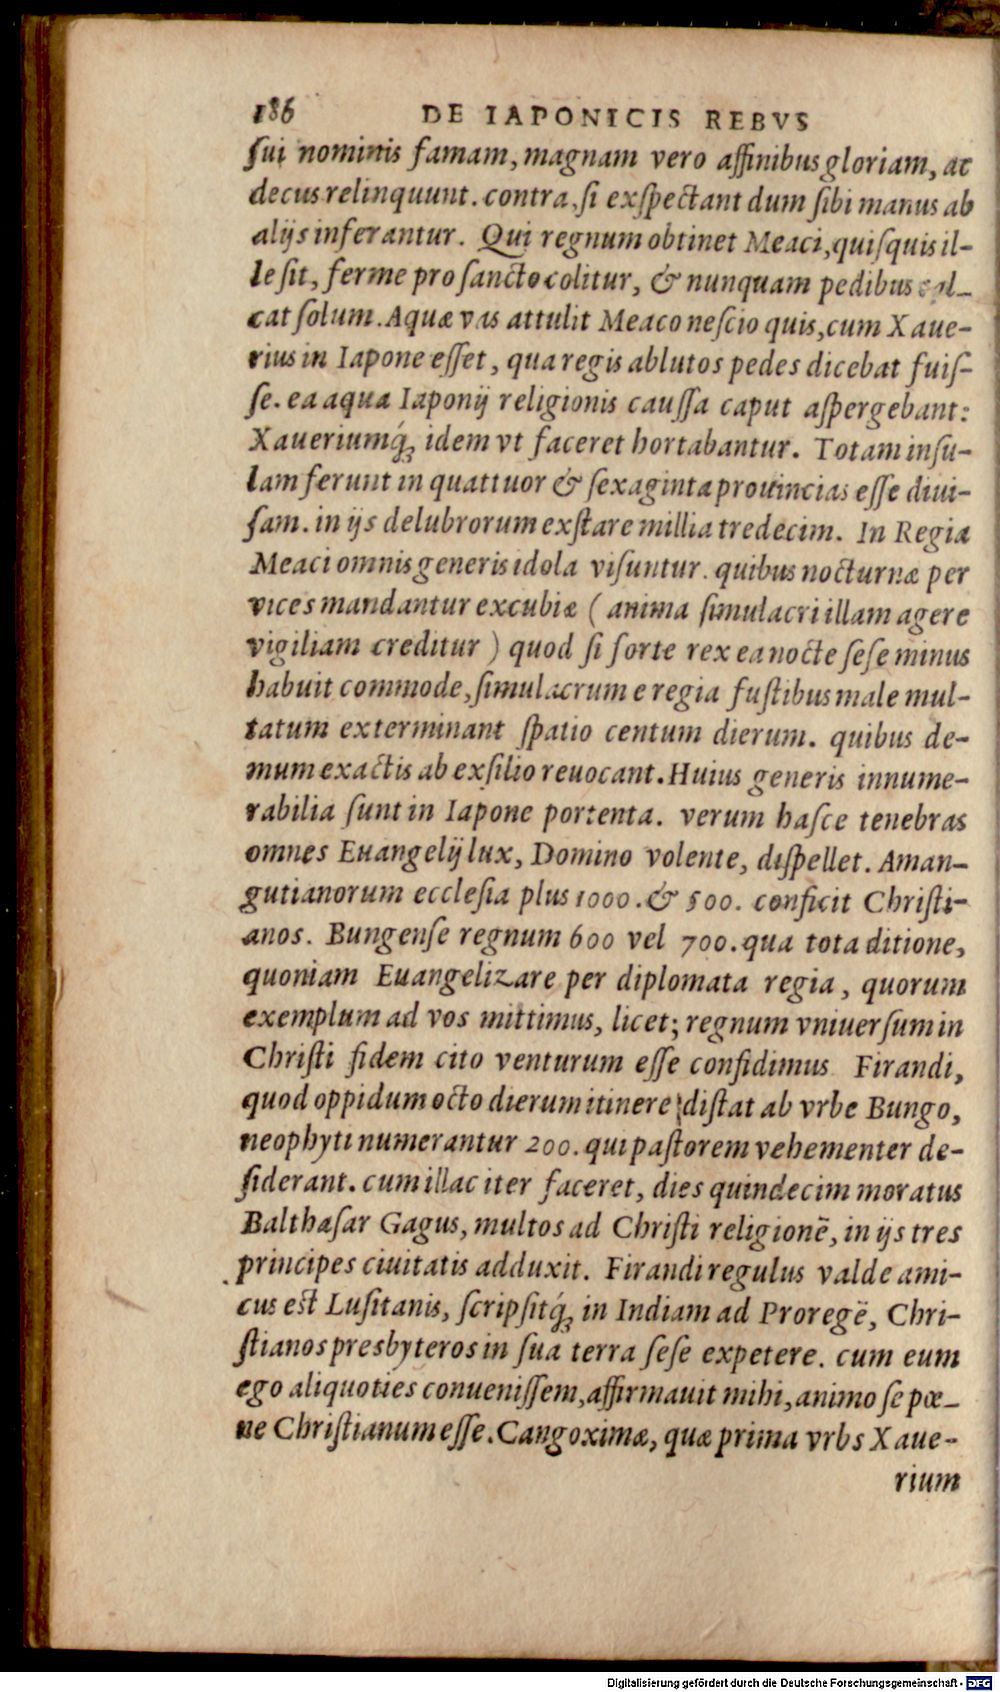 186 DE IAPONICIS REBVS
ſui nominis famam, magnam vero affinibus gloriam, ac
decus relinquunt. contra, ſi exſpectant dum ſibi manus ab
alijs inferantur. Qui regnum obtinet Meaci, quiſquis il-
le ſit, ferme pro ſancto colitur, & nunquam pedibus cal-
cat ſolum. Aquæ vas attulit Meaco neſcio quis, cum Xaue-
rius in Iapone eſſet, qua regis ablutos pedes dicebat fuiſ-
ſe. ea aqua Iaponij religionis cauſſa caput aſpergebant:
Xaueriumq́; idem vt faceret hortabantur. Totam inſu-
lam ferunt in quattuor & ſexaginta prouincias eſſe diui-
ſam. in ijs delubrorum exſtare millia tredecim. In Regia
Meaci omnis generis idola viſuntur. quibus nocturnæ per
vices mandantur excubiæ ( anima ſimulacri illam agere
vigiliam creditur ) quod ſi forte rex ea nocte ſeſe minus
habuit commode, ſimulacrum e regia fuſtibus male mul-
tatum exterminant ſpatio centum dierum. quibus de-
mum exactis ab exſilio reuocant. Huius generis innume-
rabilia ſunt in Iapone portenta. verum haſce tenebras
omnes Euangelij lux, Domino volente, diſpellet. Aman-
gutianorum eccleſia plus 1000. & 500. conficit Chriſti-
anos. Bungenſe regnum 600 vel 700. qua tota ditione,
quoniam Euangelizare per diplomata regia, quorum
exemplum ad vos mittimus, licet; regnum vniuerſum in
Chriſti fidem cito venturum eſſe confidimus Firandi,
quod oppidum octo dierum itinere diſtat ab vrbe Bungo,
neophyti numerantur 200. qui paſtorem vehementer de-
ſiderant. cum illac iter faceret, dies quindecim moratus
Balthaſar Gagus, multos ad Chriſti religionē, in ijs tres
principes ciuitatis adduxit. Firandi regulus valde ami-
cus eſt Luſitanis, ſcripſitq́; in Indiam ad Proregē, Chri-
ſtianos presbyteros in ſua terra ſeſe expetere. cum eum
ego aliquoties conueniſſem, affirmauit mihi, animo ſe pœ-
ne Chriſtianum eſſe. Cangoximæ, quæ prima vrbs Xaue-
rium
Digitalisierung gefördert durch die Deutsche Forschungsgemeinschaft - DFG